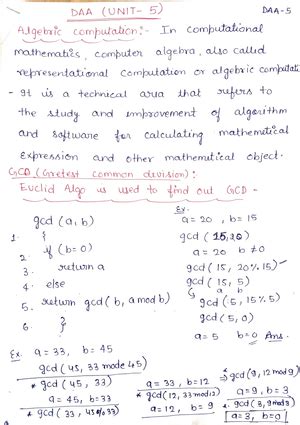 DAA (UNIT- 5)
DAA-5
Algebric computation:- In computational
mathematics, computer algebra, also called
representational computation or algebric computati
- It is a technical area that refers to
the study and improvement of algorithm
and software for calculating mathemetical
Expression and other mathemetical object.
GCD (Gretest common division):
Euclid Algo is used to find out GCD -
gcd (a, b)
1. {
2. if (b=0)
3. return a
4. else
5. return gcd (b, a mod b)
6. }
Ex.
a = 20, b = 15
gcd (15,20)
a = 20 b ≠ 0
gcd (15, 20%15)
gcd (15, 5)
a b
gcd (5, 15%5)
gcd (5, 0)
a = 5 b=0 Ans.
Ex. a = 33, b = 45
gcd (45, 33 mode 45)
* gcd (45, 33)
a = 45, b = 33
* gcd (33, 45%33)
a = 33, b = 12
* gcd (12, 33 mod 12)
a = 12, b = 9
* gcd (9, 12 mod 9)
a = 9, b = 3
* gcd (3, 9 mod 3)
a = 3, b = 0